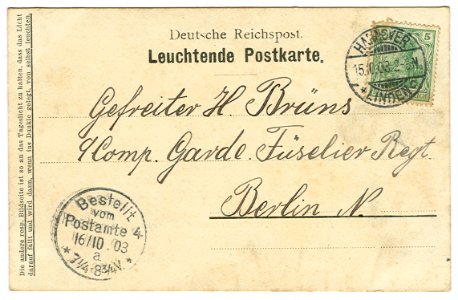 Deutsche Reichspost.
Leuchtende Postkarte.
HANNOVER
15.10.03
*LINDEN*
5
Gefreiter H. Brüns
Comp. Garde. Füselier Regt.
Berlin N.
Bestellt
vom
Postamte 4
16/10 03
a
* 7¼-8¾V. *
Die andere resp. Bildseite ist so an das Tageslicht zu halten, dass das Licht
darauf fällt und wird dann, wenn ins Dunkle gelegt, von selbst leuchten.